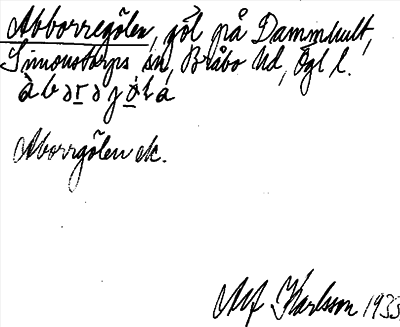 Abborregölen, göl på Dammhult,
Simonstorps sn, Bråbo hd, Ögl l.
Aborrgölen ek.
Alf Karlsson 1933